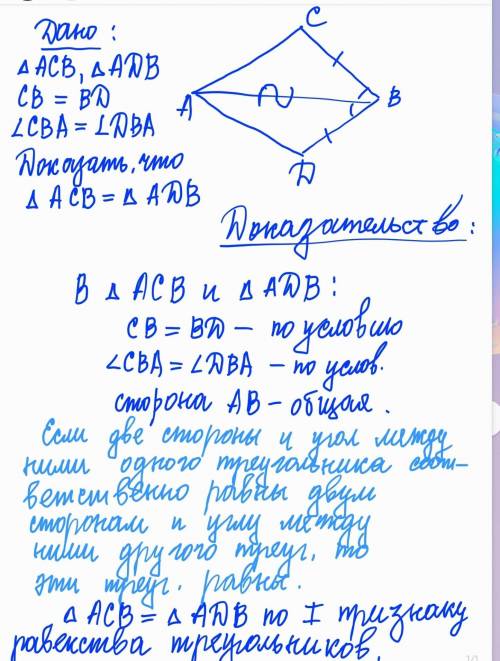 Дано:
C
△ACB, △ADB
CB = BD
A
B
∠CBA = ∠DBA
Доказать, что
D
△ACB = △ADB
Доказательство:
В △ACB и △ADB:
CB = BD – по условию
∠CBA = ∠DBA – по услов.
сторона AB – общая.
Если две стороны и угол между
ними одного треугольника соот-
ветственно равны двум
сторонам и углу между
ними другого треуг, то
эти треуг. равны.
△ACB = △ADB по I признаку
равенства треугольников.
1/1